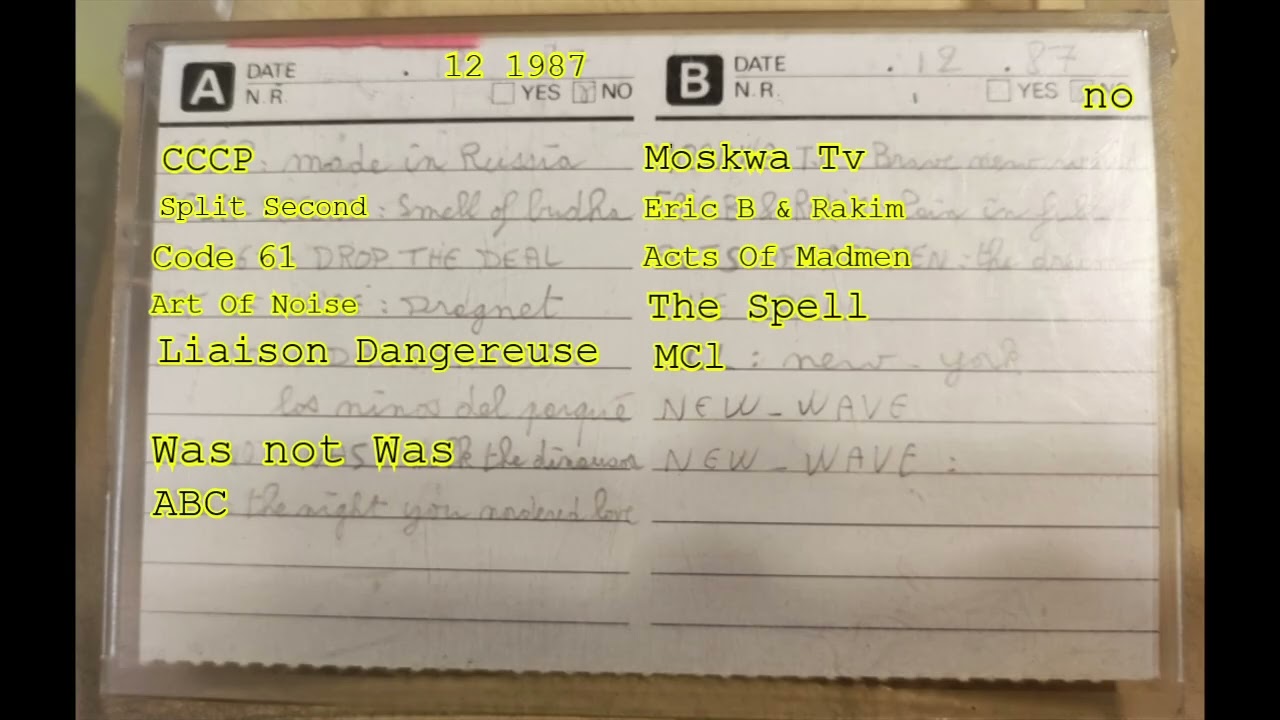 A DATE . 12 1987
N.R. YES NO
CCCP : made in Russia
Split Second : Smell of budha
Code 61 DROP THE DEAL
Art Of Noise : Dragnet
Liaison Dangereuse
los ninos del parque
Was not Was the dinausor
ABC the night you murdered love
B DATE . 12 . 87
N.R. YES no
Moskwa Tv Brave new
Eric B & Rakim in full
Acts Of Madmen : the dream
The Spell
MCl : new - york
NEW - WAVE
NEW - WAVE :